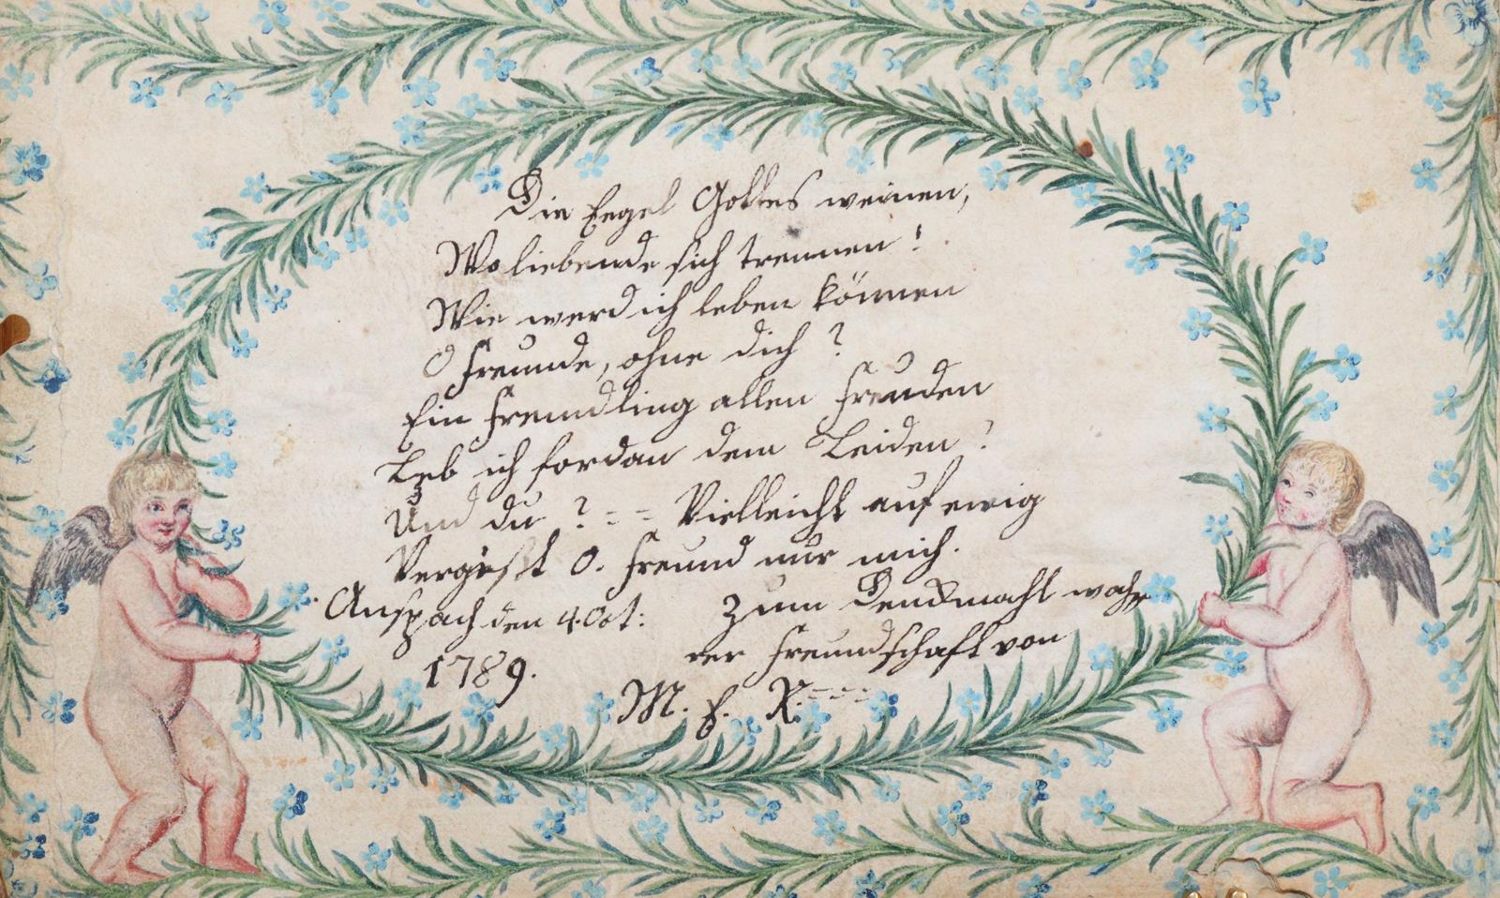 Die Engel Gottes weinen,
Wo liebende sich trennen!
Wie werd ich leben können
O Freunde, ohne dich?
Ein Fremdling allen Freuden
Leb ich fordan dem Leiden!
Und du? = = Vielleicht auf ewig
Vergißt O. Freund nur mich.
Anspach den 4. Oct:
1789.
Zum Denckmahl wah
rer Freundschaft von
M. E. R. = = =